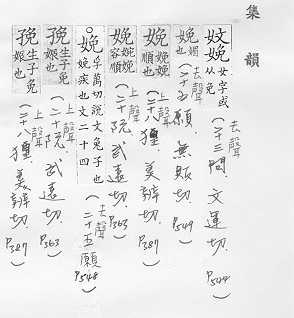 集韻
㛃娩 女字或从免 (去聲 二十三問 文運切. P.544)
娩 媚也 (去聲 二十五願 無販切. P.549)
娩 婉娩順也 (上聲 二十八獮. 美辨切. P.387)
娩 婉娩容順 (上聲 二十阮. 武遠切. P.363)
娩 孚萬切說文兔子也娩疾也文二十四 (去聲 二十五願 P.548)
㝃 生子免娠也 (上聲 二十阮. 武遠切. P.363)
㝃 生子免娠也 (上聲 二十八獮. 美辨切. P.387)